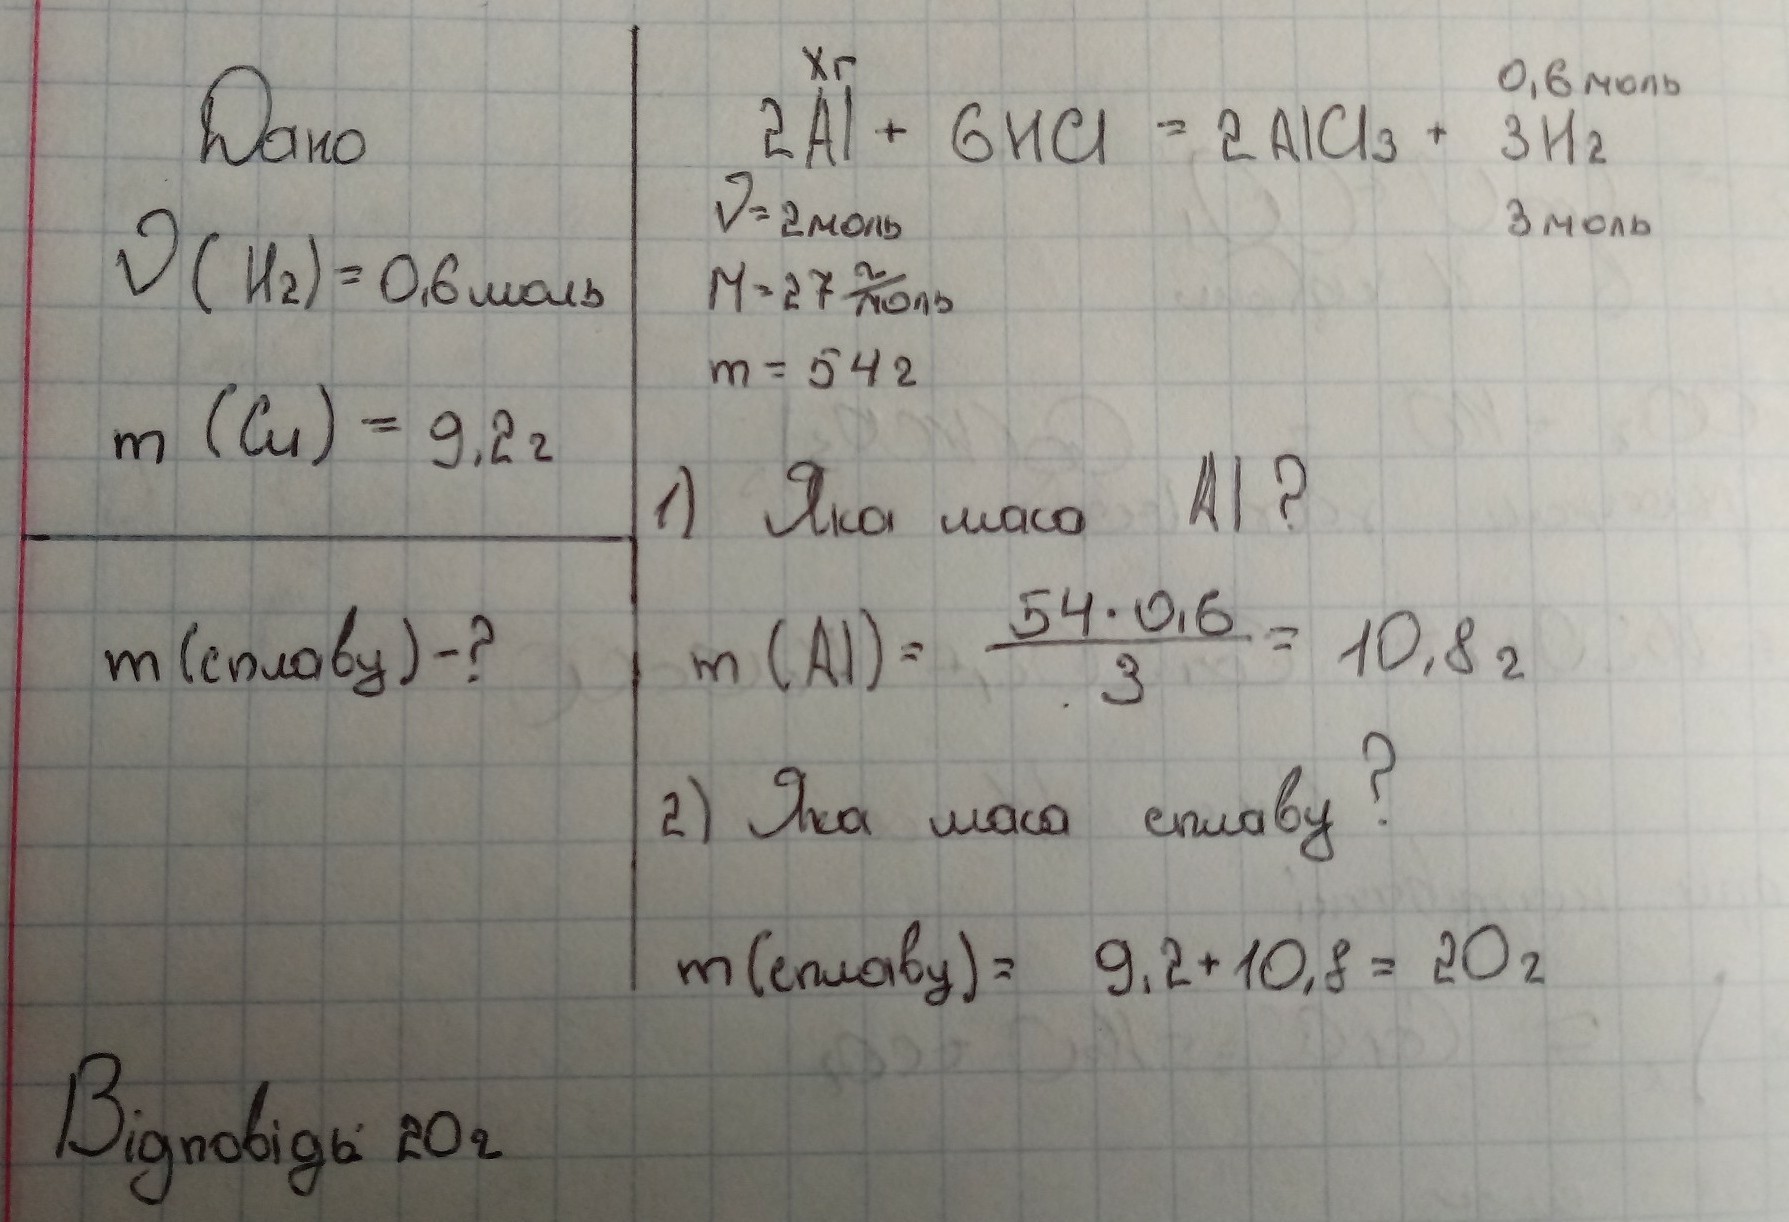 Дано
ν(H₂) = 0,6 моль
m (Cu) = 9,2 г
m(сплаву) - ?
xг
0,6 моль
2Al + 6HCl = 2AlCl₃ + 3H₂
ν = 2 моль
3 моль
M = 27 г/моль
m = 54 г
1) Яка маса Al?
m (Al) = 54 · 0,6 / 3 = 10,8 г
2) Яка маса сплаву?
m(сплаву) = 9,2 + 10,8 = 20 г
Відповідь: 20 г